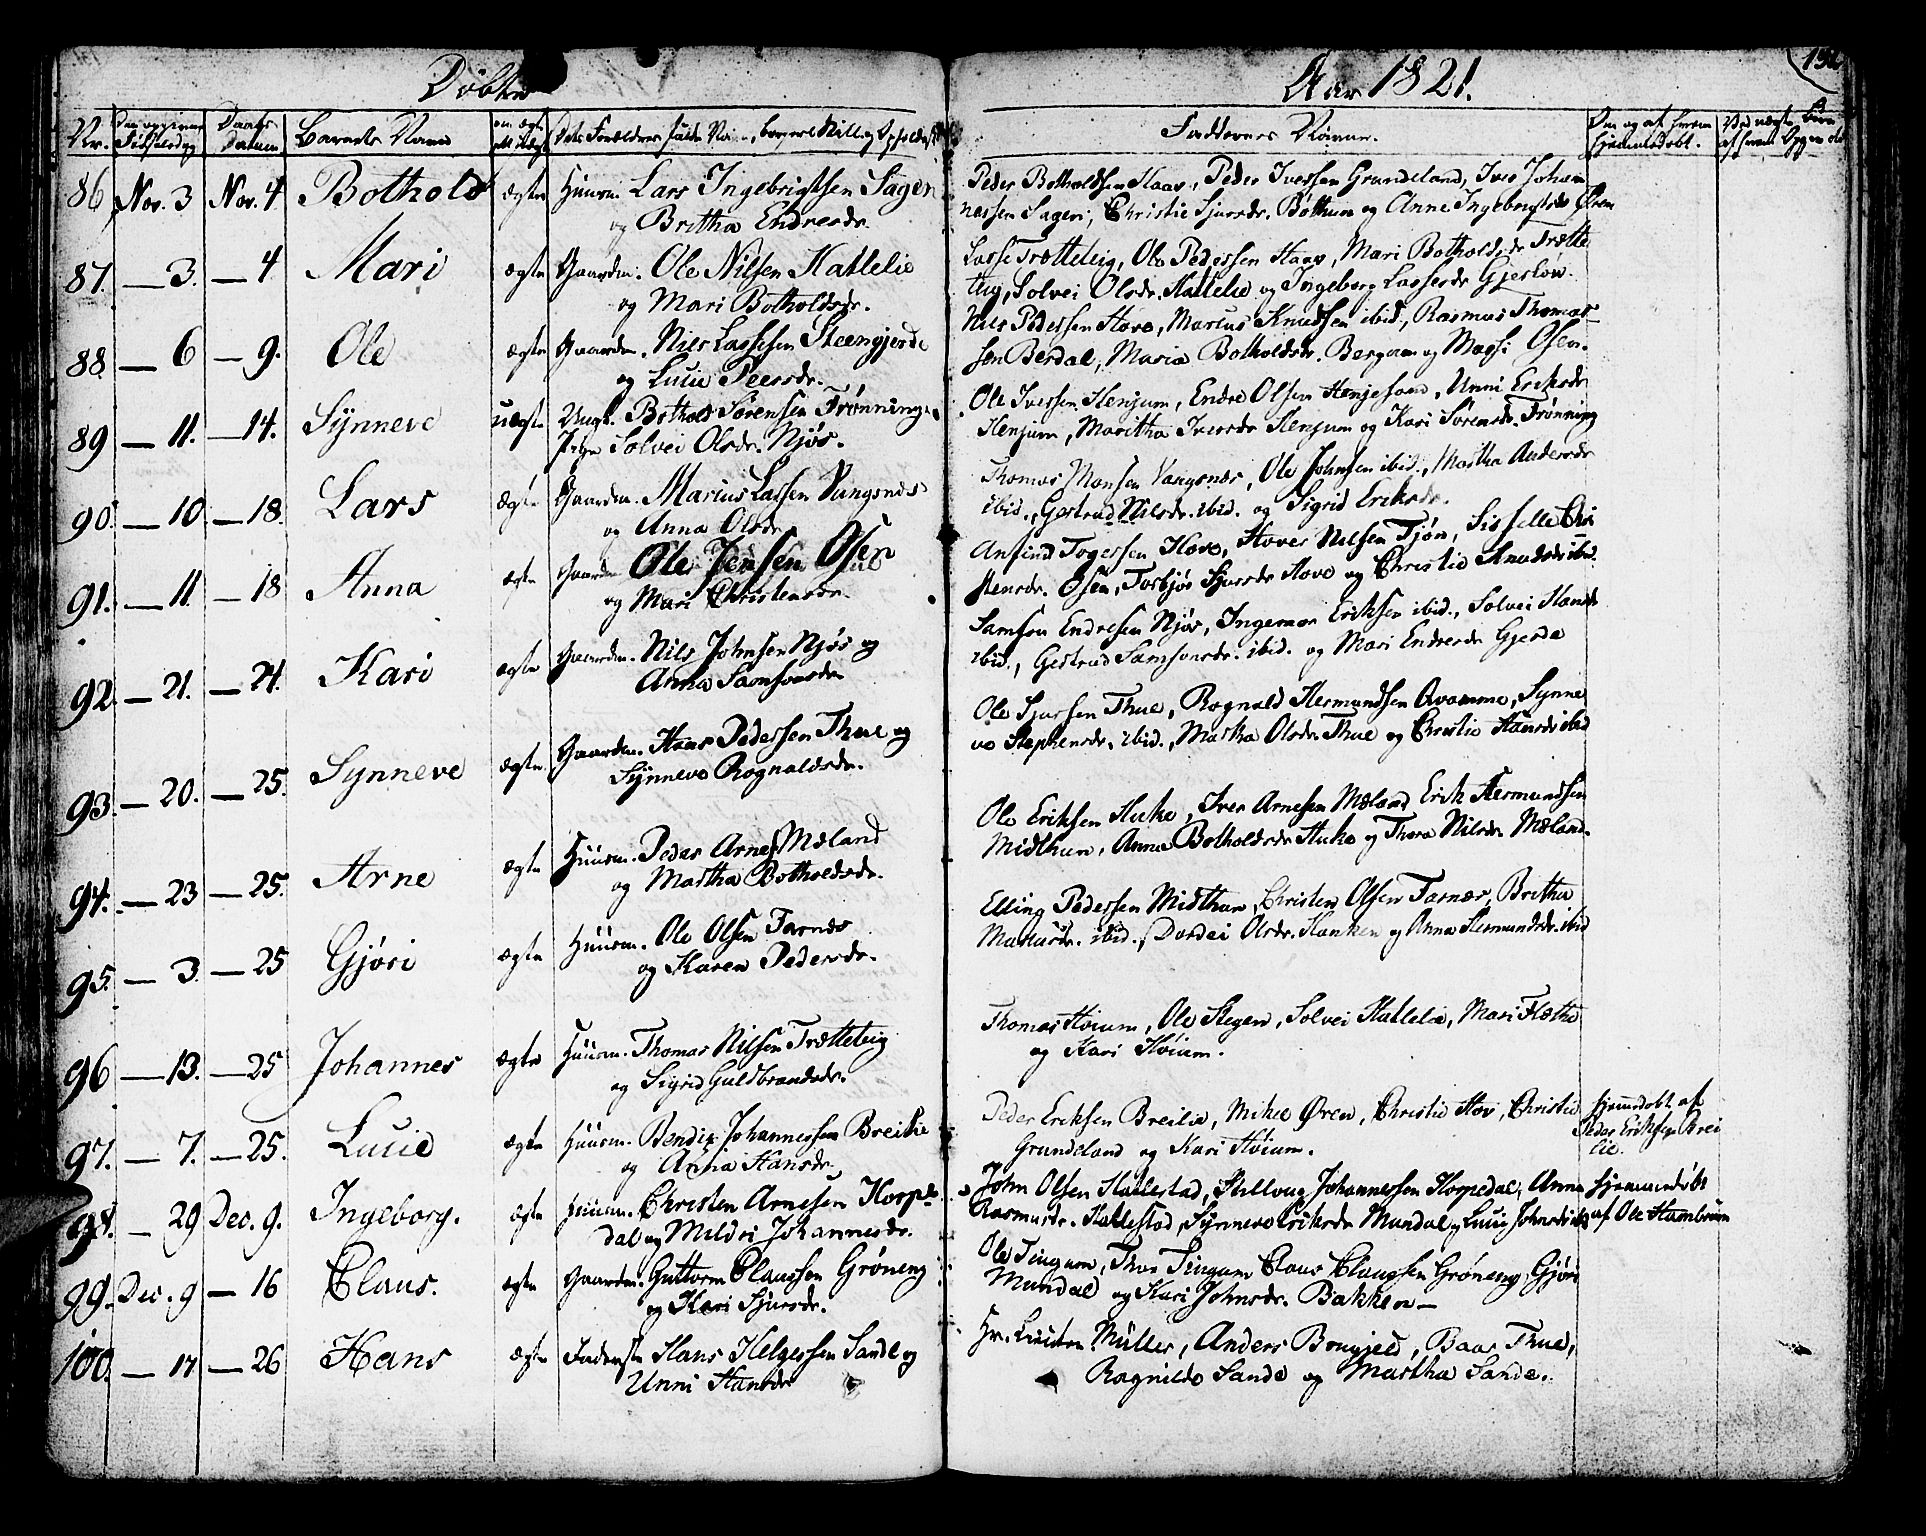 Døbte
Aar 1821.
Nr. Barnets Navn
Faddernes Navne.
86 Nov. 3 Nov. 4 Bothold ægte Huusm. Lars Ingebrigtsen Sagen
og Britha Endresdr.
Peder Botholdsen Haav, Peder Iversen Grundeland, Iver Johan
nessen Sagen, Christie Sjursdr. Bøthun og Anne Ingebrigtsdr Øren
87. — 3. — 4 Mari ægte Gaardm. Ole Nilsen Hatlelie
og Mari Botholdsdr.
Lasse Trætteteig, Ole Pedersen Haav, Mari Botholdsdr Trætte
teig, Solvei Olsdr. Hatlelie og Ingeborg Lassesdr Gjesløv.
88 — 6 — 9. Ole ægte Gaardm. Nils Lassesen Steengjerde
og Lucie Peersdr.
Nils Pedersen Hove, Marius Knudsen ibid., Rasmus Thomas
sen Berdal, Maria Botholdsdr. Bergum og Magsi Osen.
89 — 11. — 14. Synneve uægte Ungk. Bothold Sørensen Frønninge
Pige Solvei Olsdr. Njøs.
Ole Iversen Henjum, Endre Olsen Henjesand, Unni Eriksdr
Henjum, Maritha Iversdr Henjum og Kari Sørensdr. Frønning
90. — 10. — 18. Lars ægte Gaardm. Marius Lassen Vangsnes
og Anna Olsdr.
Thomas Monsen Vangsnes, Ole Johnsen ibid., Martha Andersdr
ibid., Gertrud Nilsdr. ibid. og Sigrid Eriksdr.
91. — 11. — 18 Anna ægte Gaardm Ole Jensen Osen
og Mari Christensdr.
Anfind Togersen Hove, Haver Nilsen Tjøn, Sisselle Chri
stensdr. Osen, Torbjør Sjursdr Hove og Christie Knudsdr ibid.
92. — 21. — 24. Kari ægte Gaardm. Nils Johnsen Njøs og
Anna Samsonsdr
Samson Endresen Njøs, Ingemar Eriksen ibid., Solvei Hansdr
ibid., Gertrud Samsonsdr. ibid. og Mari Endresdr Gjerde
93. — 20. — 25. Synneve ægte Gaardm. Hans Pedersen Thue og
Synneve Rognaldsdr.
Ole Sjursen Thue, Rognald Hermundsen Qvamme, Synne
ve Stephensdr. ibid., Martha Olsdr. Thue og Christie Hansdr ibid
94. — 23 — 25. Arne ægte Huusm. Peder Arnes. Mæland
og Martha Botholdsdr.
Ole Eriksen Huke, Iver Arnesen Mæland, Erik Hermundsen
Midthun, Anna Botholdsdr Huke og Thora Nilsdr Mæland.
95. — 3. — 25 Gjøri ægte Huusm. Ole Olsen Farnes
og Karen Pedersdr.
Elling Pedersen Midthun, Christen Olsen Farnæs, Britha
Mariusdr. ibid., Dordei Olsdr. Hanken og Anna Hermundsdr. ibid
96 — 13. — 25 Johannes ægte Huusm. Thomas Nilsen Trætteteig
og Sigrid Guldbrandsdr.
Thomas Høium, Ole Stegen, Solvei Hatlelie, Mari Flæthe
og Kari Høium.
97. — 7. — 25. Lucie ægte Huusm. Bendix Johannessen Breilie
og Anna Hansdr.
Peder Eriksen Breilie, Mikel Øren, Christie Hov, Christie
Grundeland og Kari Høium.
Hjemdøbt af
Peder Eriksen Brei
lie.
98. — 29 Dec. 9. Ingeborg. ægte Huusm. Christen Arnesen Horpe
dal og Mildri Johannesdr.
John Olsen Hatlestad, Skilloug Johannessen Horpedal, Anna
Rasmusdr. Hatlestad, Synneve Eriksdr Mundal og Lucie Johnsdr ibid
Hjemmedøbt
af Ole Hambrum
99. Dec. 9 — 16 Claus. ægte Gaardm. Guttorm Claussen Grøneng
og Kari Sjursdr.
Ole Tingum, Thor Tingum, Claus Claussen Grøneng, Gjøri
Mundal og Kari Johnsdr. Bakken —
100. — 17 — 26 Hans ægte Inderste Hans Helgesen Sande og
Unni Hansdr
Hr. Lieuten. Müller, Anders Brugjeld, Baar Thue,
Ragnilde Sande og Martha Sande.